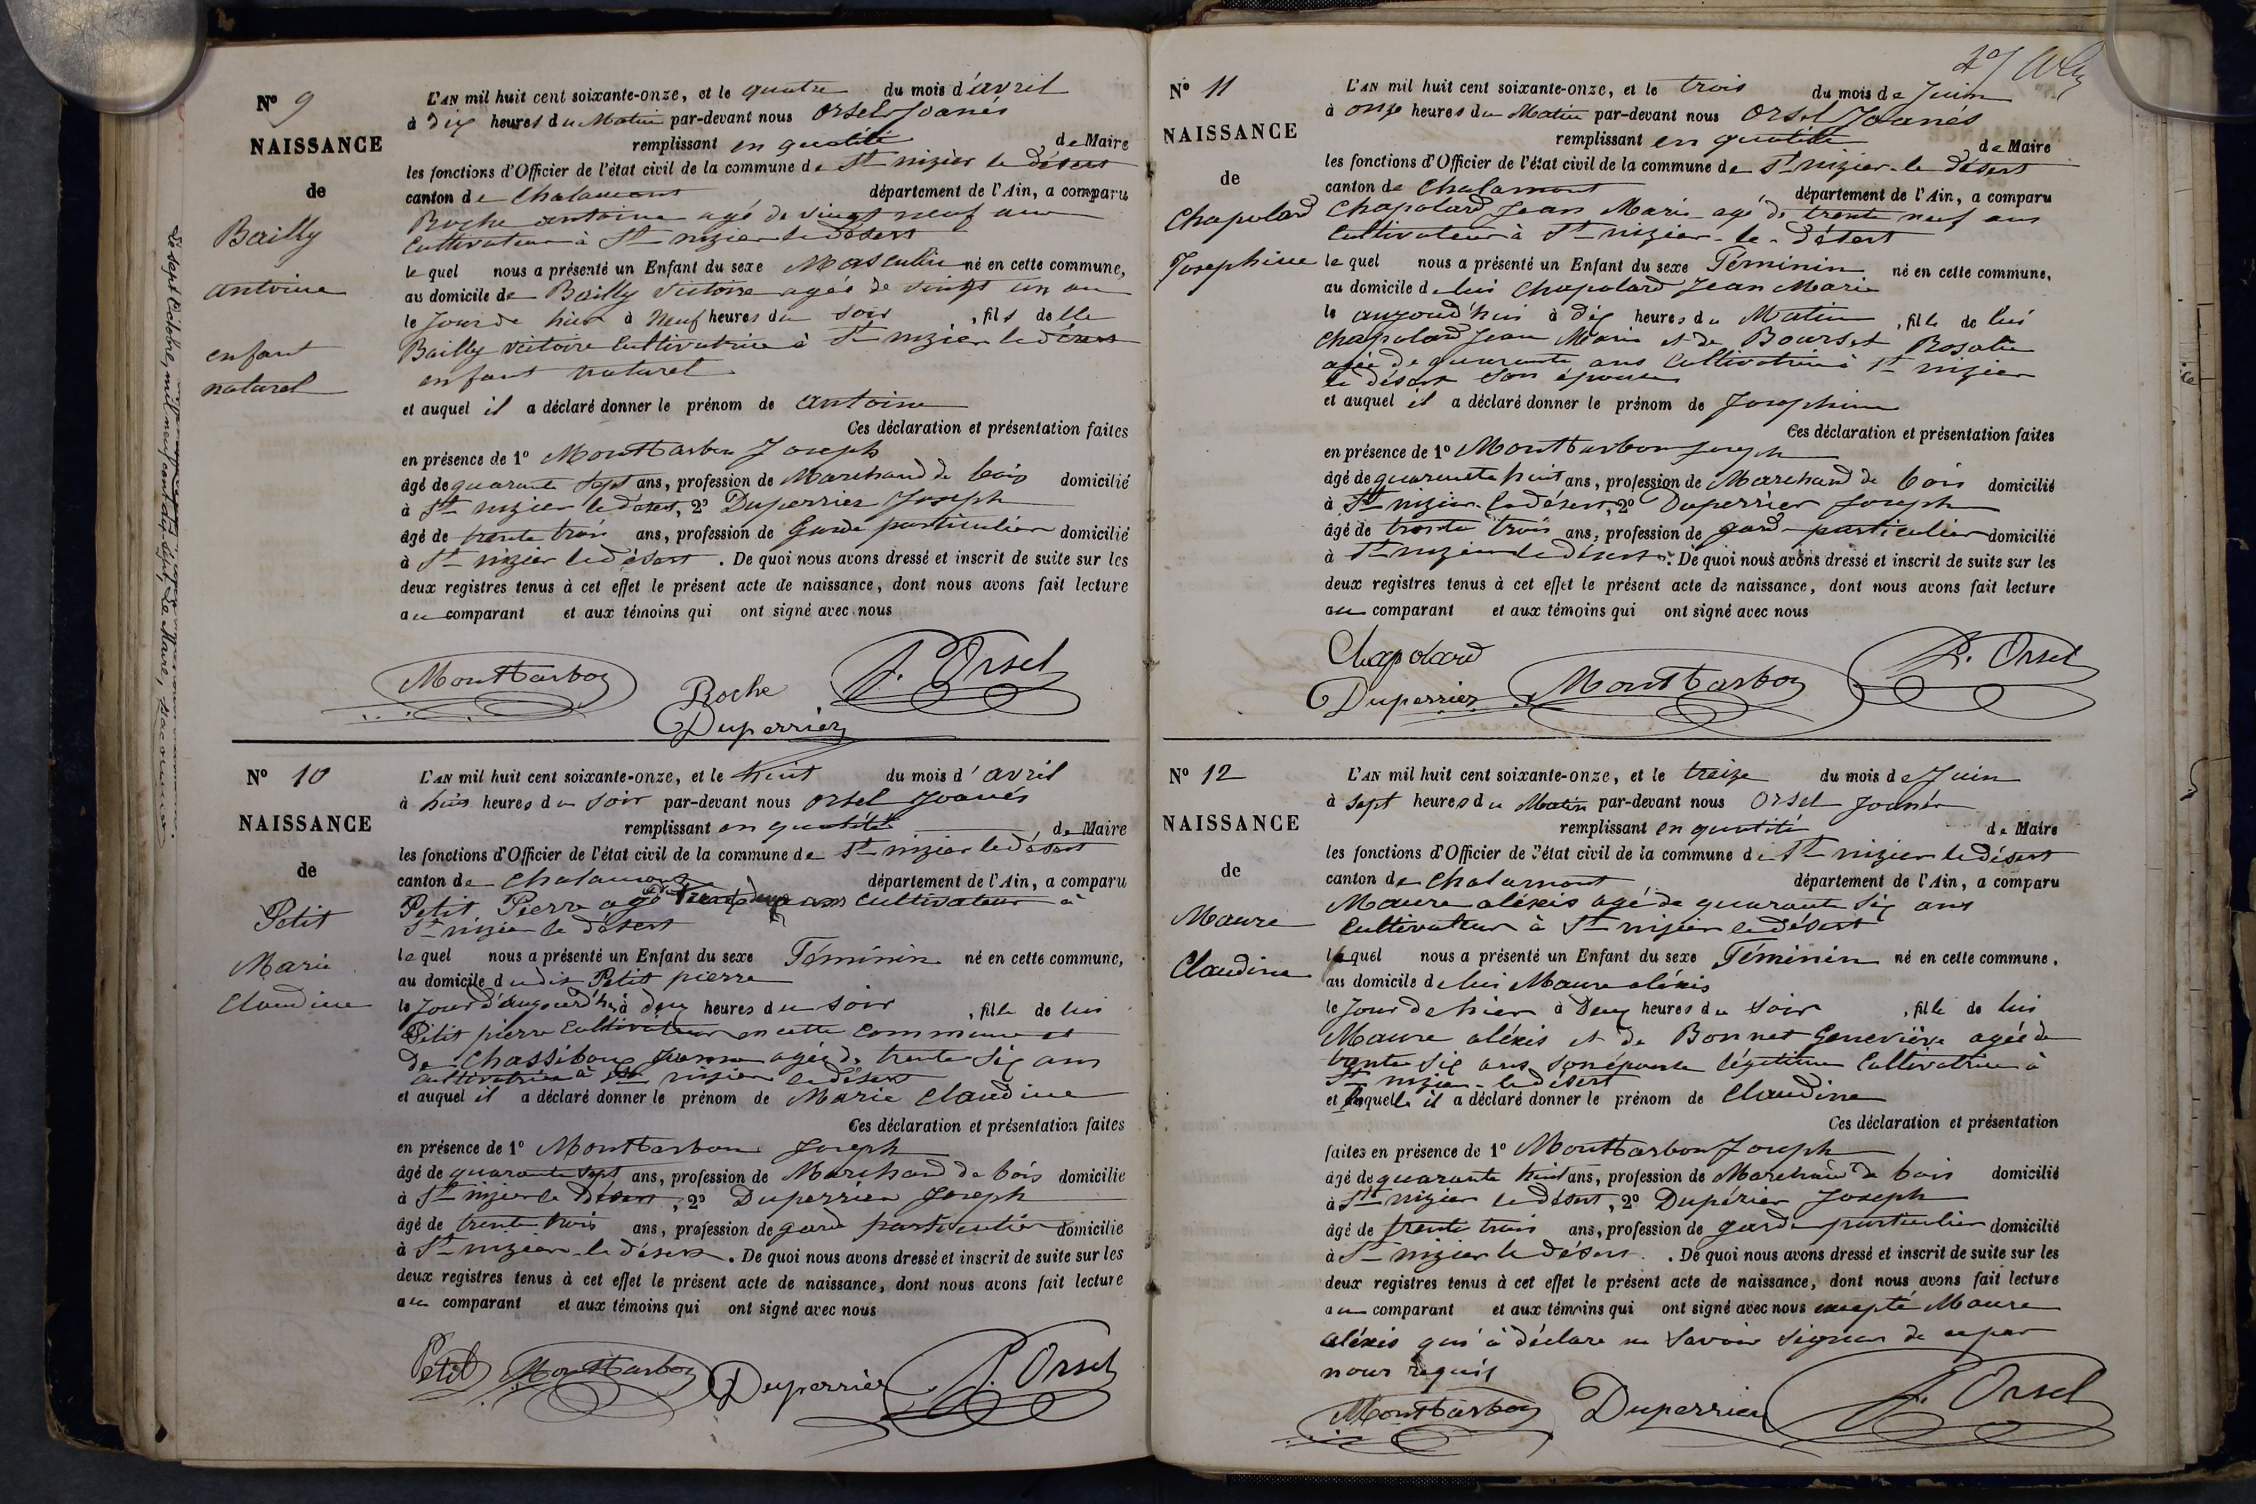 Nº 9
NAISSANCE
de
Bailly
antoine
enfant
naturel
L'AN mil huit cent soixante-onze, et le quatre du mois d'avril
à dix heures du Matin par-devant nous Orsel Joanés
remplissant en qualité de Maire
les fonctions d'Officier de l'état civil de la commune de St nizier le désert
canton de Chalamont département de l'Ain, a comparu
Roche antoine agé de vingt neuf ans
Cultivateur à St nizier le désert
lequel nous a présenté un Enfant du sexe Masculin né en cette commune,
au domicile de Bailly Victoire agée de vingt un an
le Jour de hier à Neuf heures du soir , fils de lle
Bailly victoire Cultivatrice à St nizier le désert
enfant naturel
et auquel il a déclaré donner le prénom de antoine
Ces déclaration et présentation faites
en présence de 1º Monttarbon Joseph
âgé de quarante sept ans, profession de Marchand de bois domicilié
à St nizier le désert, 2º Duperrier Joseph
âgé de trente trois ans, profession de Garde particulier domicilié
à St nizier le désert . De quoi nous avons dressé et inscrit de suite sur les
deux registres tenus à cet effet le présent acte de naissance, dont nous avons fait lecture
au comparant et aux témoins qui ont signé avec nous
Monttarbon Roche J. Orsel
Duperrier
Nº 10
NAISSANCE
de
Petit
Marie
Claudine
L'AN mil huit cent soixante-onze, et le huit du mois d'avril
à huis heures du soir par-devant nous Orsel Joanés
remplissant en qualité de Maire
les fonctions d'Officier de l'état civil de la commune de St nizier le désert
canton de Chalamont département de l'Ain, a comparu
Petit Pierre agé ans Cultivateur à
St nizier le désert
lequel nous a présenté un Enfant du sexe Féminin né en cette commune,
au domicile dudit Petit pierre
le Jour d'aujourd'hui à deux heures du soir , fille de lui
Petit pierre Cultivateur en cette commune et
de Chassiboux Jeanne agée de trente six ans
cultivatrice à St nizier le désert
et auquel il a déclaré donner le prénom de Marie Claudine
Ces déclaration et présentation faites
en présence de 1º Monttarbon Joseph
âgé de quarante sept ans, profession de Marchand de bois domicilié
à St nizier le désert, 2º Duperrier Joseph
âgé de trente trois ans, profession de gard particulier domicilié
à St nizier le désert . De quoi nous avons dressé et inscrit de suite sur les
deux registres tenus à cet effet le présent acte de naissance, dont nous avons fait lecture
au comparant et aux témoins qui ont signé avec nous
Petit Monttarbon Duperrier J. Orsel
Nº 11
NAISSANCE
de
Chapolard
Josephine
L'AN mil huit cent soixante-onze, et le trois du mois de Juin
à onze heures du Matin par-devant nous Orsel Joanés
remplissant en qualité de Maire
les fonctions d'Officier de l'état civil de la commune de St nizier le désert
canton de Chalamont département de l'Ain, a comparu
Chapolard Jean Marie agé de trente neuf ans
Cultivateur à St nizier le désert
lequel nous a présenté un Enfant du sexe Féminin né en cette commune,
au domicile de lui Chapolard Jean Marie
le aujourd'hui à dix heures du Matin , fille de lui
Chapolard Jean Marie et de Boursit Rosalie
agée de quarante ans Cultivatrice à St nizier
le désert son épouse
et auquel il a déclaré donner le prénom de Josephine
Ces déclaration et présentation faites
en présence de 1º Monttarbon Joseph
âgé de quarante huit ans, profession de Marchand de bois domicilié
à St nizier le désert, 2º Duperrier Joseph
âgé de trente trois ans, profession de gard particulier domicilié
à St nizier le désert . De quoi nous avons dressé et inscrit de suite sur les
deux registres tenus à cet effet le présent acte de naissance, dont nous avons fait lecture
au comparant et aux témoins qui ont signé avec nous
Chapolard
Duperrier Monttarbon J. Orsel
Nº 12
NAISSANCE
de
Maure
Claudine
L'AN mil huit cent soixante-onze, et le treize du mois de Juin
à sept heures du Matin par-devant nous Orsel Joanés
remplissant en qualité de Maire
les fonctions d'Officier de l'état civil de la commune de St nizier le désert
canton de Chalamont département de l'Ain, a comparu
Maure aléxis agé de quarante six ans
Cultivateur à St nizier le désert
lequel nous a présenté un Enfant du sexe Féminin né en cette commune,
au domicile de lui Maure aléxis
le Jour de hier à Deux heures du soir , fille de lui
Maure aléxis et de Bonnet Geneviève agée de
trente six ans son épouse légitime Cultivatrice à
St nizier le désert
et laquelle il a déclaré donner le prénom de Claudine
Ces déclaration et présentation
faites en présence de 1º Monttarbon Joseph
âgé de quarante huit ans, profession de Marchand de bois domicilié
à St nizier le désert, 2º Dupérier Joseph
âgé de trente trois ans, profession de garde particulier domicilié
à St nizier le désert . De quoi nous avons dressé et inscrit de suite sur les
deux registres tenus à cet effet le présent acte de naissance, dont nous avons fait lecture
au comparant et aux témoins qui ont signé avec nous excepté Maure
aléxis qui à déclare ne savoir signer de ce par
nous requis
Monttarbon Duperrier J. Orsel